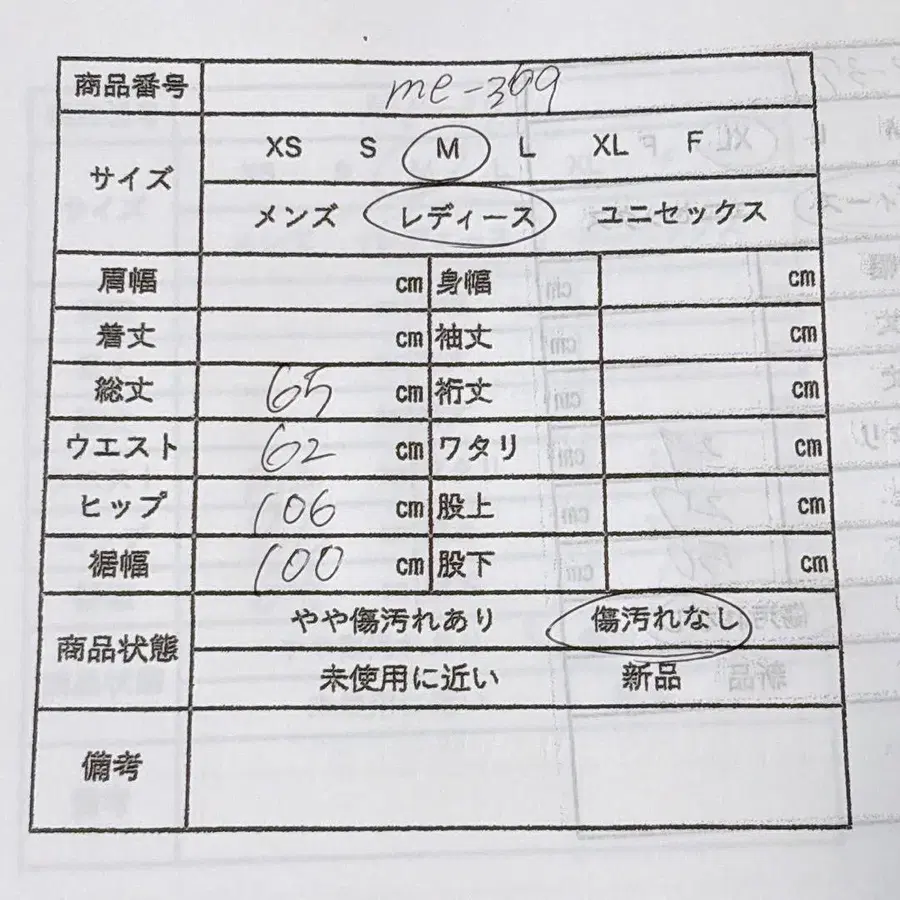 商品番号 me-369
サイズ XS S M L XL F
メンズ レディース ユニセックス
肩幅 cm 身幅 cm
着丈 cm 袖丈 cm
総丈 65 cm 裄丈 cm
ウエスト 62 cm ワタリ cm
ヒップ 106 cm 股上 cm
裾幅 100 cm 股下 cm
商品状態 やや傷汚れあり 傷汚れなし
未使用に近い 新品
備考